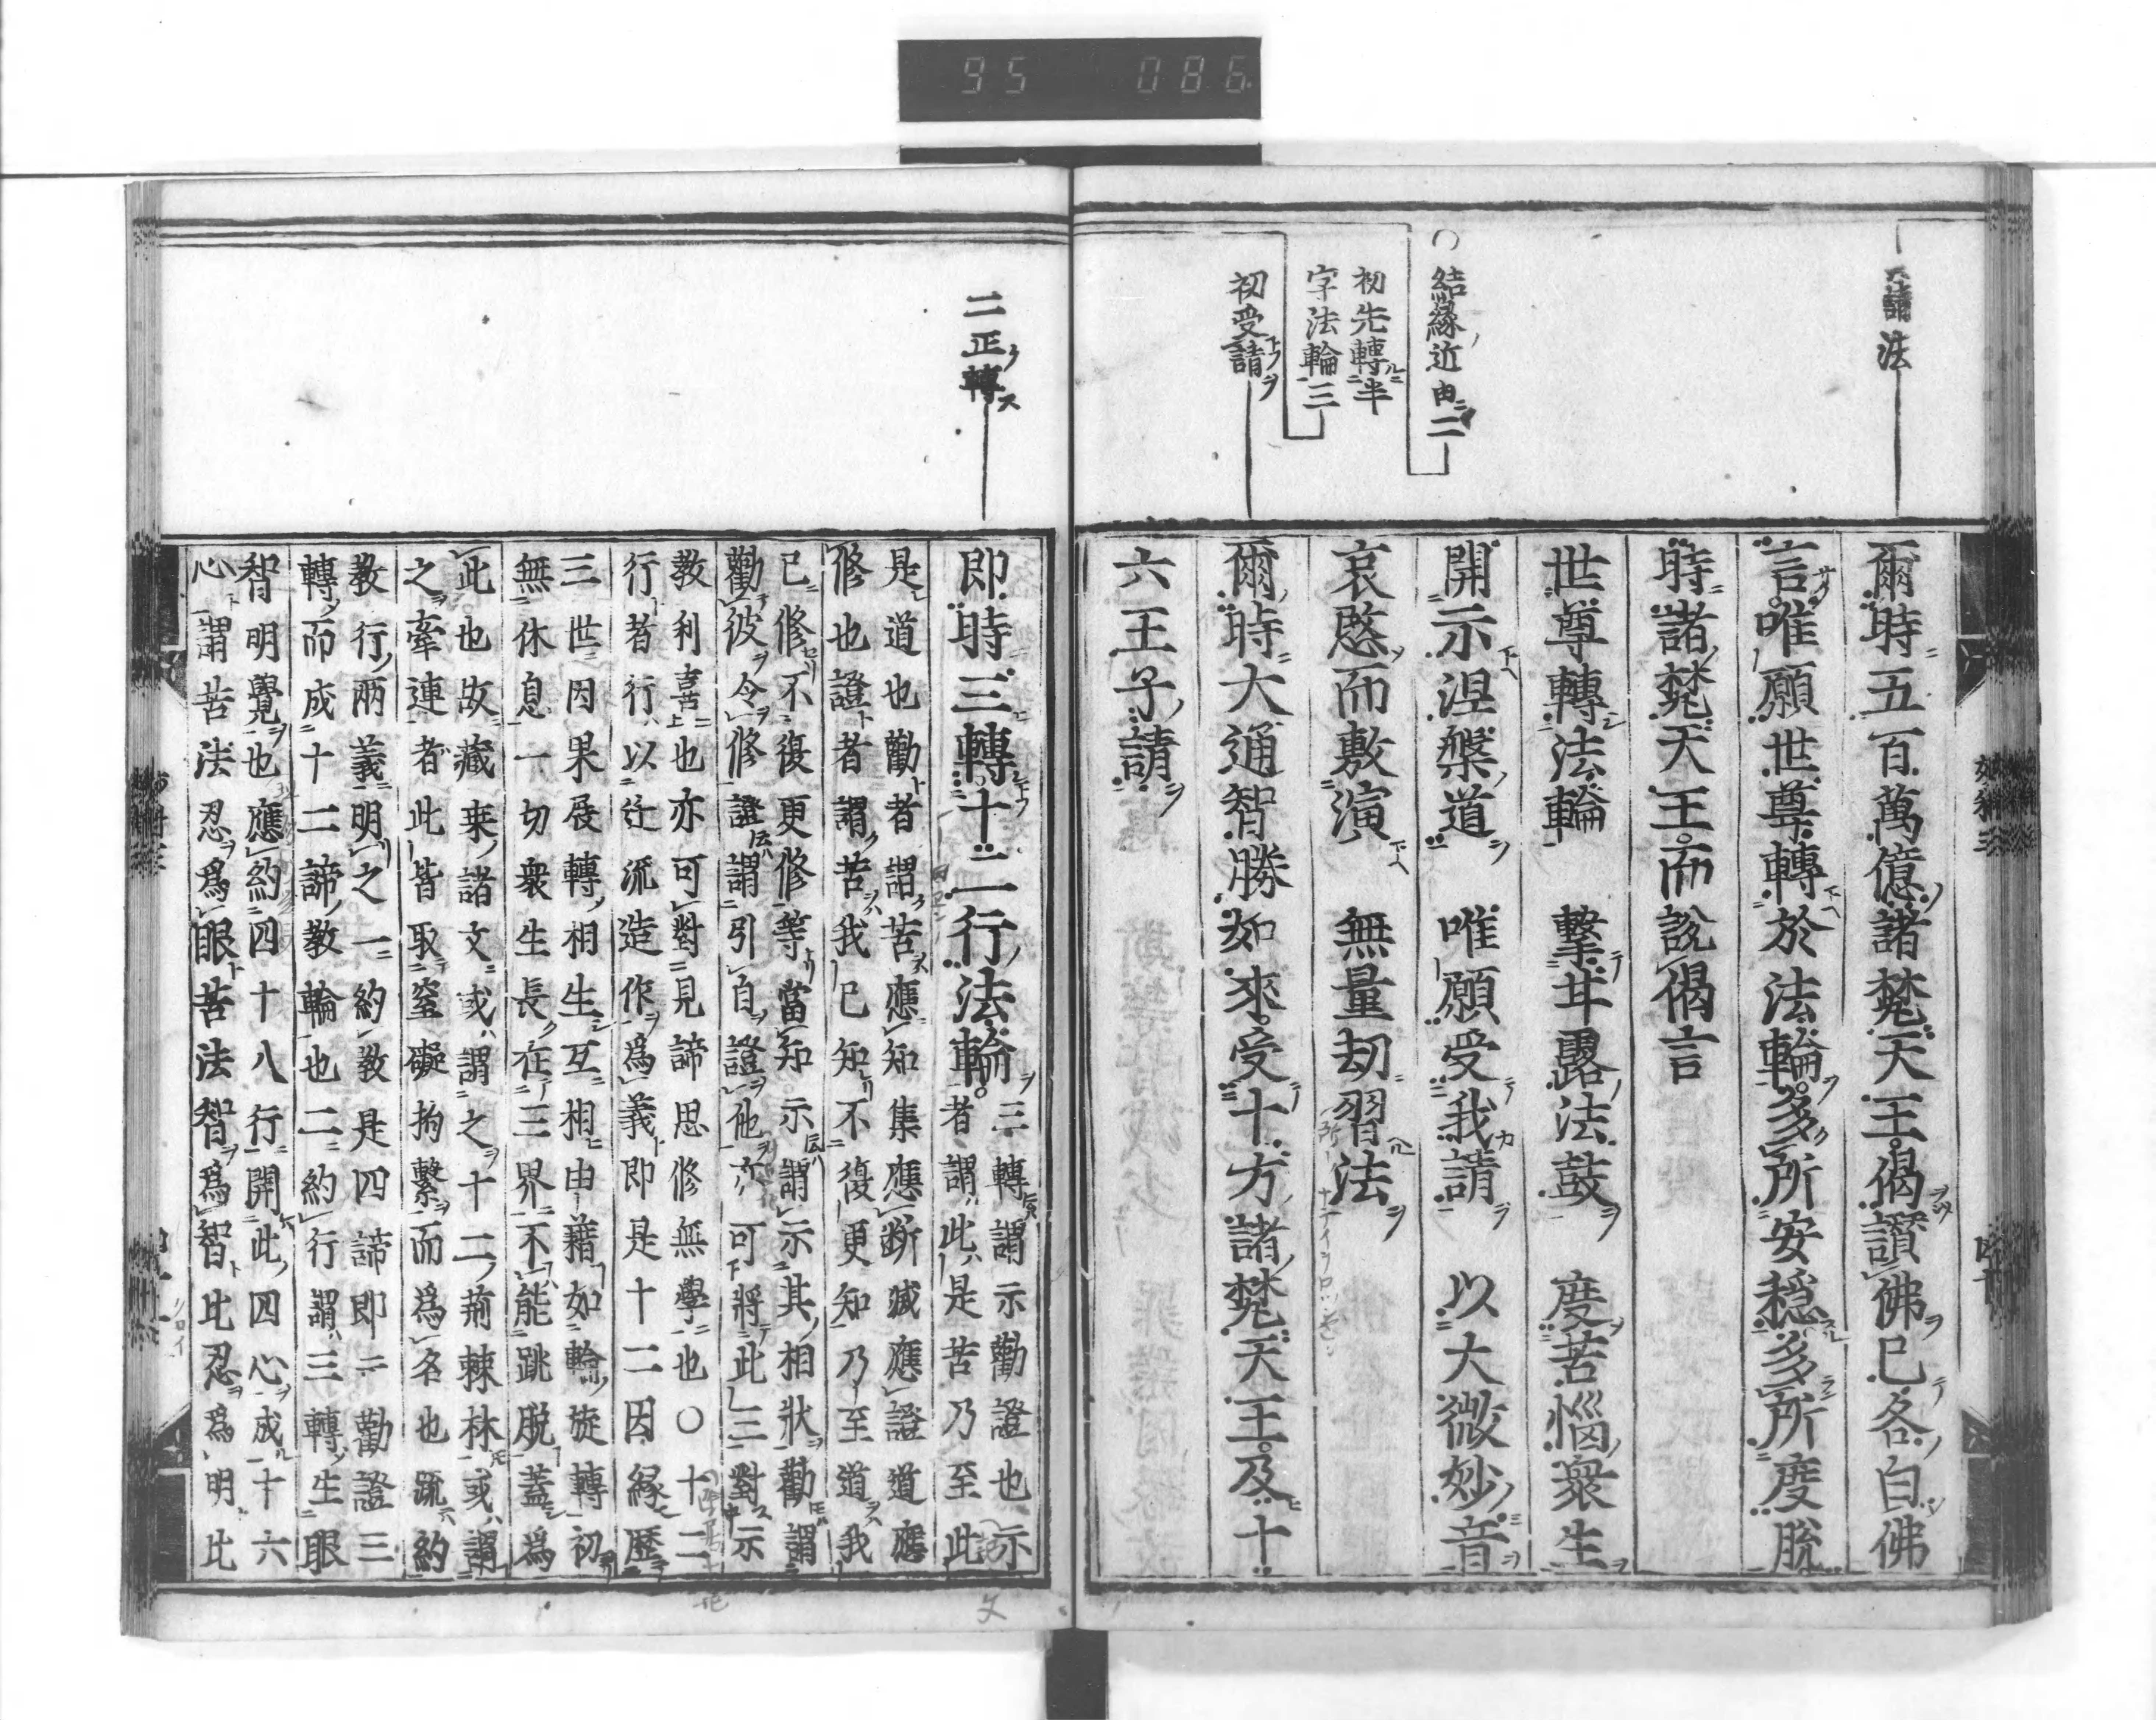 95 086
請法
爾時五百萬億諸梵天王偈讃佛已各白佛
言唯願世尊轉於法輪多所安穩多所度脫
時諸梵天王而說偈言
世尊轉法輪 擊甘露法鼓 度苦惱衆生
開示涅槃道 唯願受我請 以大微妙音
哀愍而敷演 無量劫習法
爾時大通智勝如來受十方諸梵天王及十
六王子請
○結緣近由二
初先轉半
字法輪三
初受請
二正轉
即時三轉十二行法輪
三轉謂示勸證也示
者謂此是苦乃至此
是道也勸者謂苦應知集應斷滅應證道應
修也證者謂苦我已知不復更知乃至道我
已修不復更修等當知示謂示其相狀勸謂
勸彼令修證謂引自證他亦可將此三對示
教利喜也亦可對見諦思修無學也○十二
行者行以迁流造作爲義即是十二因緣歷
三世因果展轉相生互相由藉如輪旋轉初
無休息一切衆生長在三界不能跳脫蓋爲
此也故藏来諸文或謂之十二荊棘林或謂
之牽連者此皆取窒礙拘繫而爲名也䟽約
教行兩義明之一約教是四諦即二勸證三
轉而成十二諦教輪也二約行謂三轉生眼
智明覺也應約四十八行開此四心成十六
心謂苦法忍爲眼苦法智爲智比忍爲明比